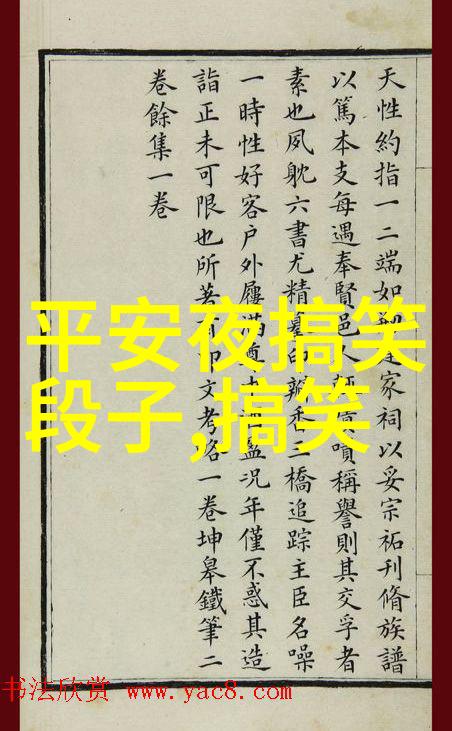 天性約指一二端如家祠以妥宗祏刊脩族譜
以篤本支每遇奉賢邑人嘖稱譽則其交孚者
素也夙躭六書尤精摹印瓣香三橋追踪主臣名噪
一時性好客户外屨滿盈況年僅不惑其造
詣正未可限也所著有印文考略一卷坤皋鐵筆二
卷餘集一卷
平安夜搞笑
段子,搞笑
书法欣赏 www.yac8.com